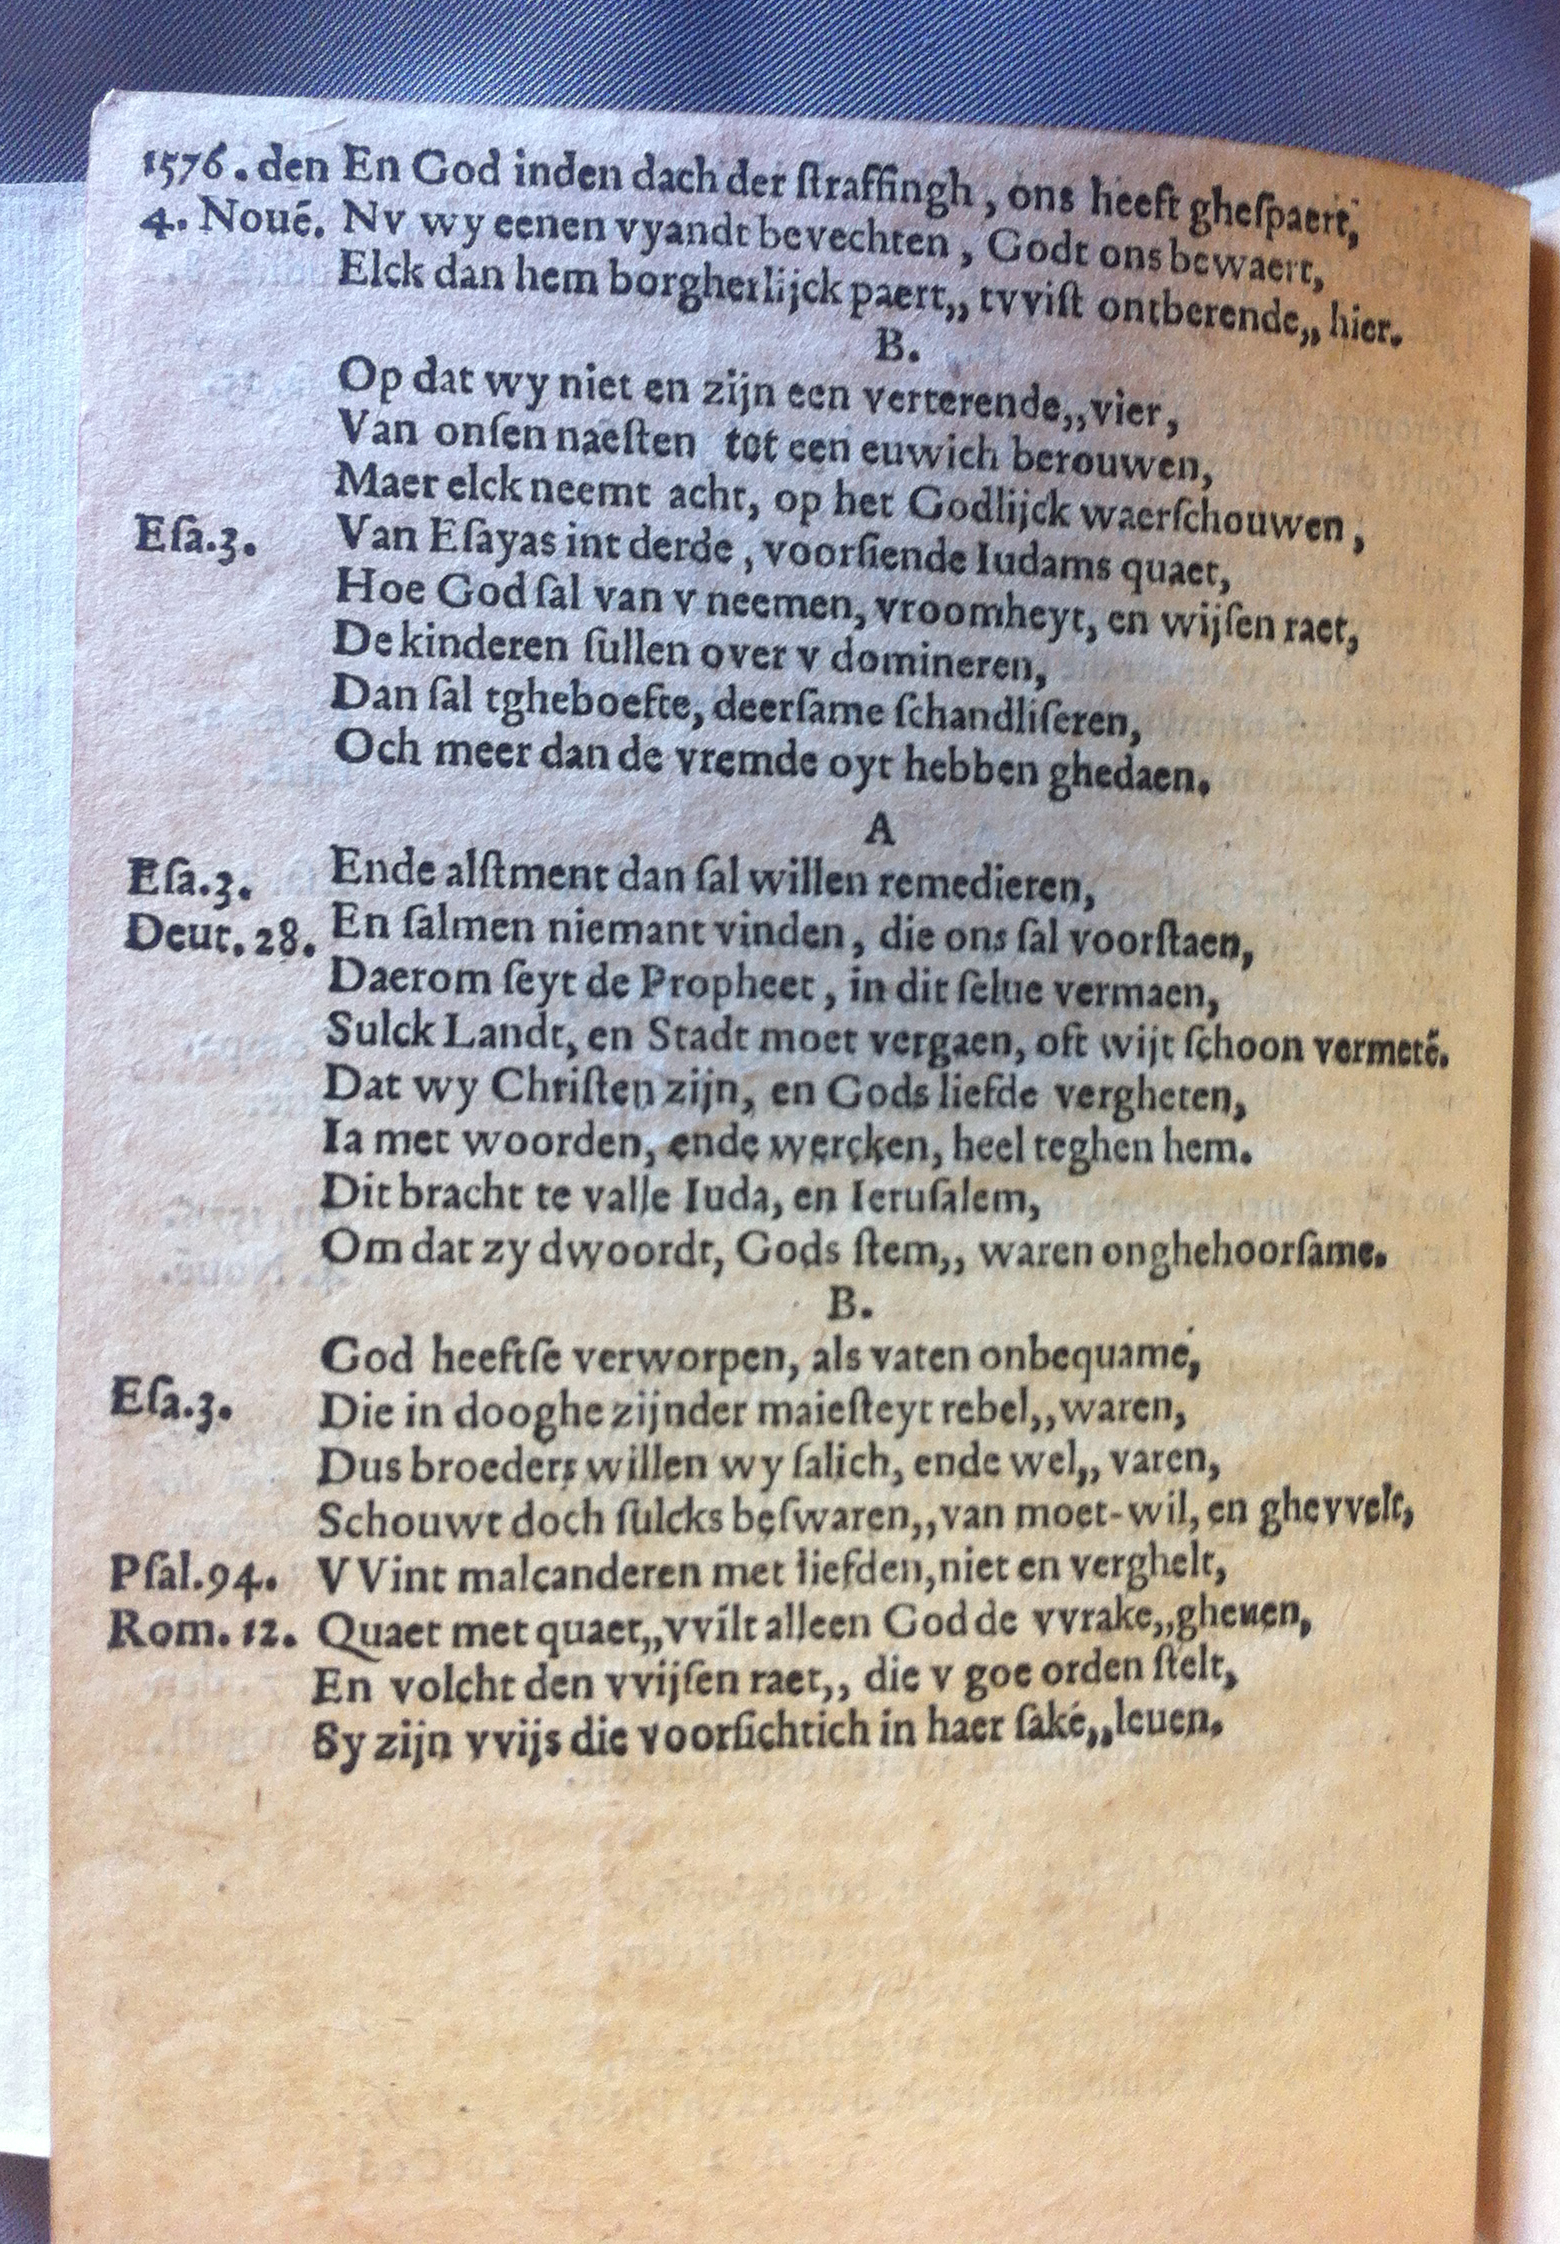 1576. den En God inden dach der ſtraffingh, ons heeft gheſpaert,
4. Noué. Nv wy eenen vyandt bevechten, Godt ons bewaert,
Elck dan hem borgherlijck paert,, tvviſt ontberende,, hier.
B.
Op dat wy niet en zijn een verterende,,vier,
Van onſen naeſten tot een euwich berouwen,
Maer elck neemt acht, op het Godlijck waerſchouwen,
Eſa.3. Van Eſayas int derde, voorſiende Iudams quaet,
Hoe God ſal van v neemen, vroomheyt, en wijſen raet,
De kinderen ſullen over v domineren,
Dan ſal tgheboefte, deerſame ſchandliſeren,
Och meer dan de vremde oyt hebben ghedaen.
A
Eſa.3. Ende alſtment dan ſal willen remedieren,
Deut. 28. En ſalmen niemant vinden, die ons ſal voorſtaen,
Daerom ſeyt de Propheet, in dit ſelue vermaen,
Sulck Landt, en Stadt moet vergaen, oft wijt ſchoon vermeté.
Dat wy Chriſten zijn, en Gods liefde vergheten,
Ia met woorden, ende wercken, heel teghen hem.
Dit bracht te valle Iuda, en Ieruſalem,
Om dat zy dwoordt, Gods ſtem,, waren onghehoorſame.
B.
God heeftſe verworpen, als vaten onbequame,
Eſa.3. Die in dooghe zijnder maieſteyt rebel,,waren,
Dus broeders willen wy ſalich, ende wel,, varen,
Schouwt doch ſulcks beſwaren,,van moet-wil, en ghevvelt,
Pſal.94. VVint malcanderen met liefden,niet en verghelt,
Rom. 12. Quaet met quaet,,vvilt alleen God de vvrake,,gheuen,
En volcht den vvijſen raet,, die v goe orden ſtelt,
Sy zijn vvijs die voorſichtich in haer ſaké,,leuen.